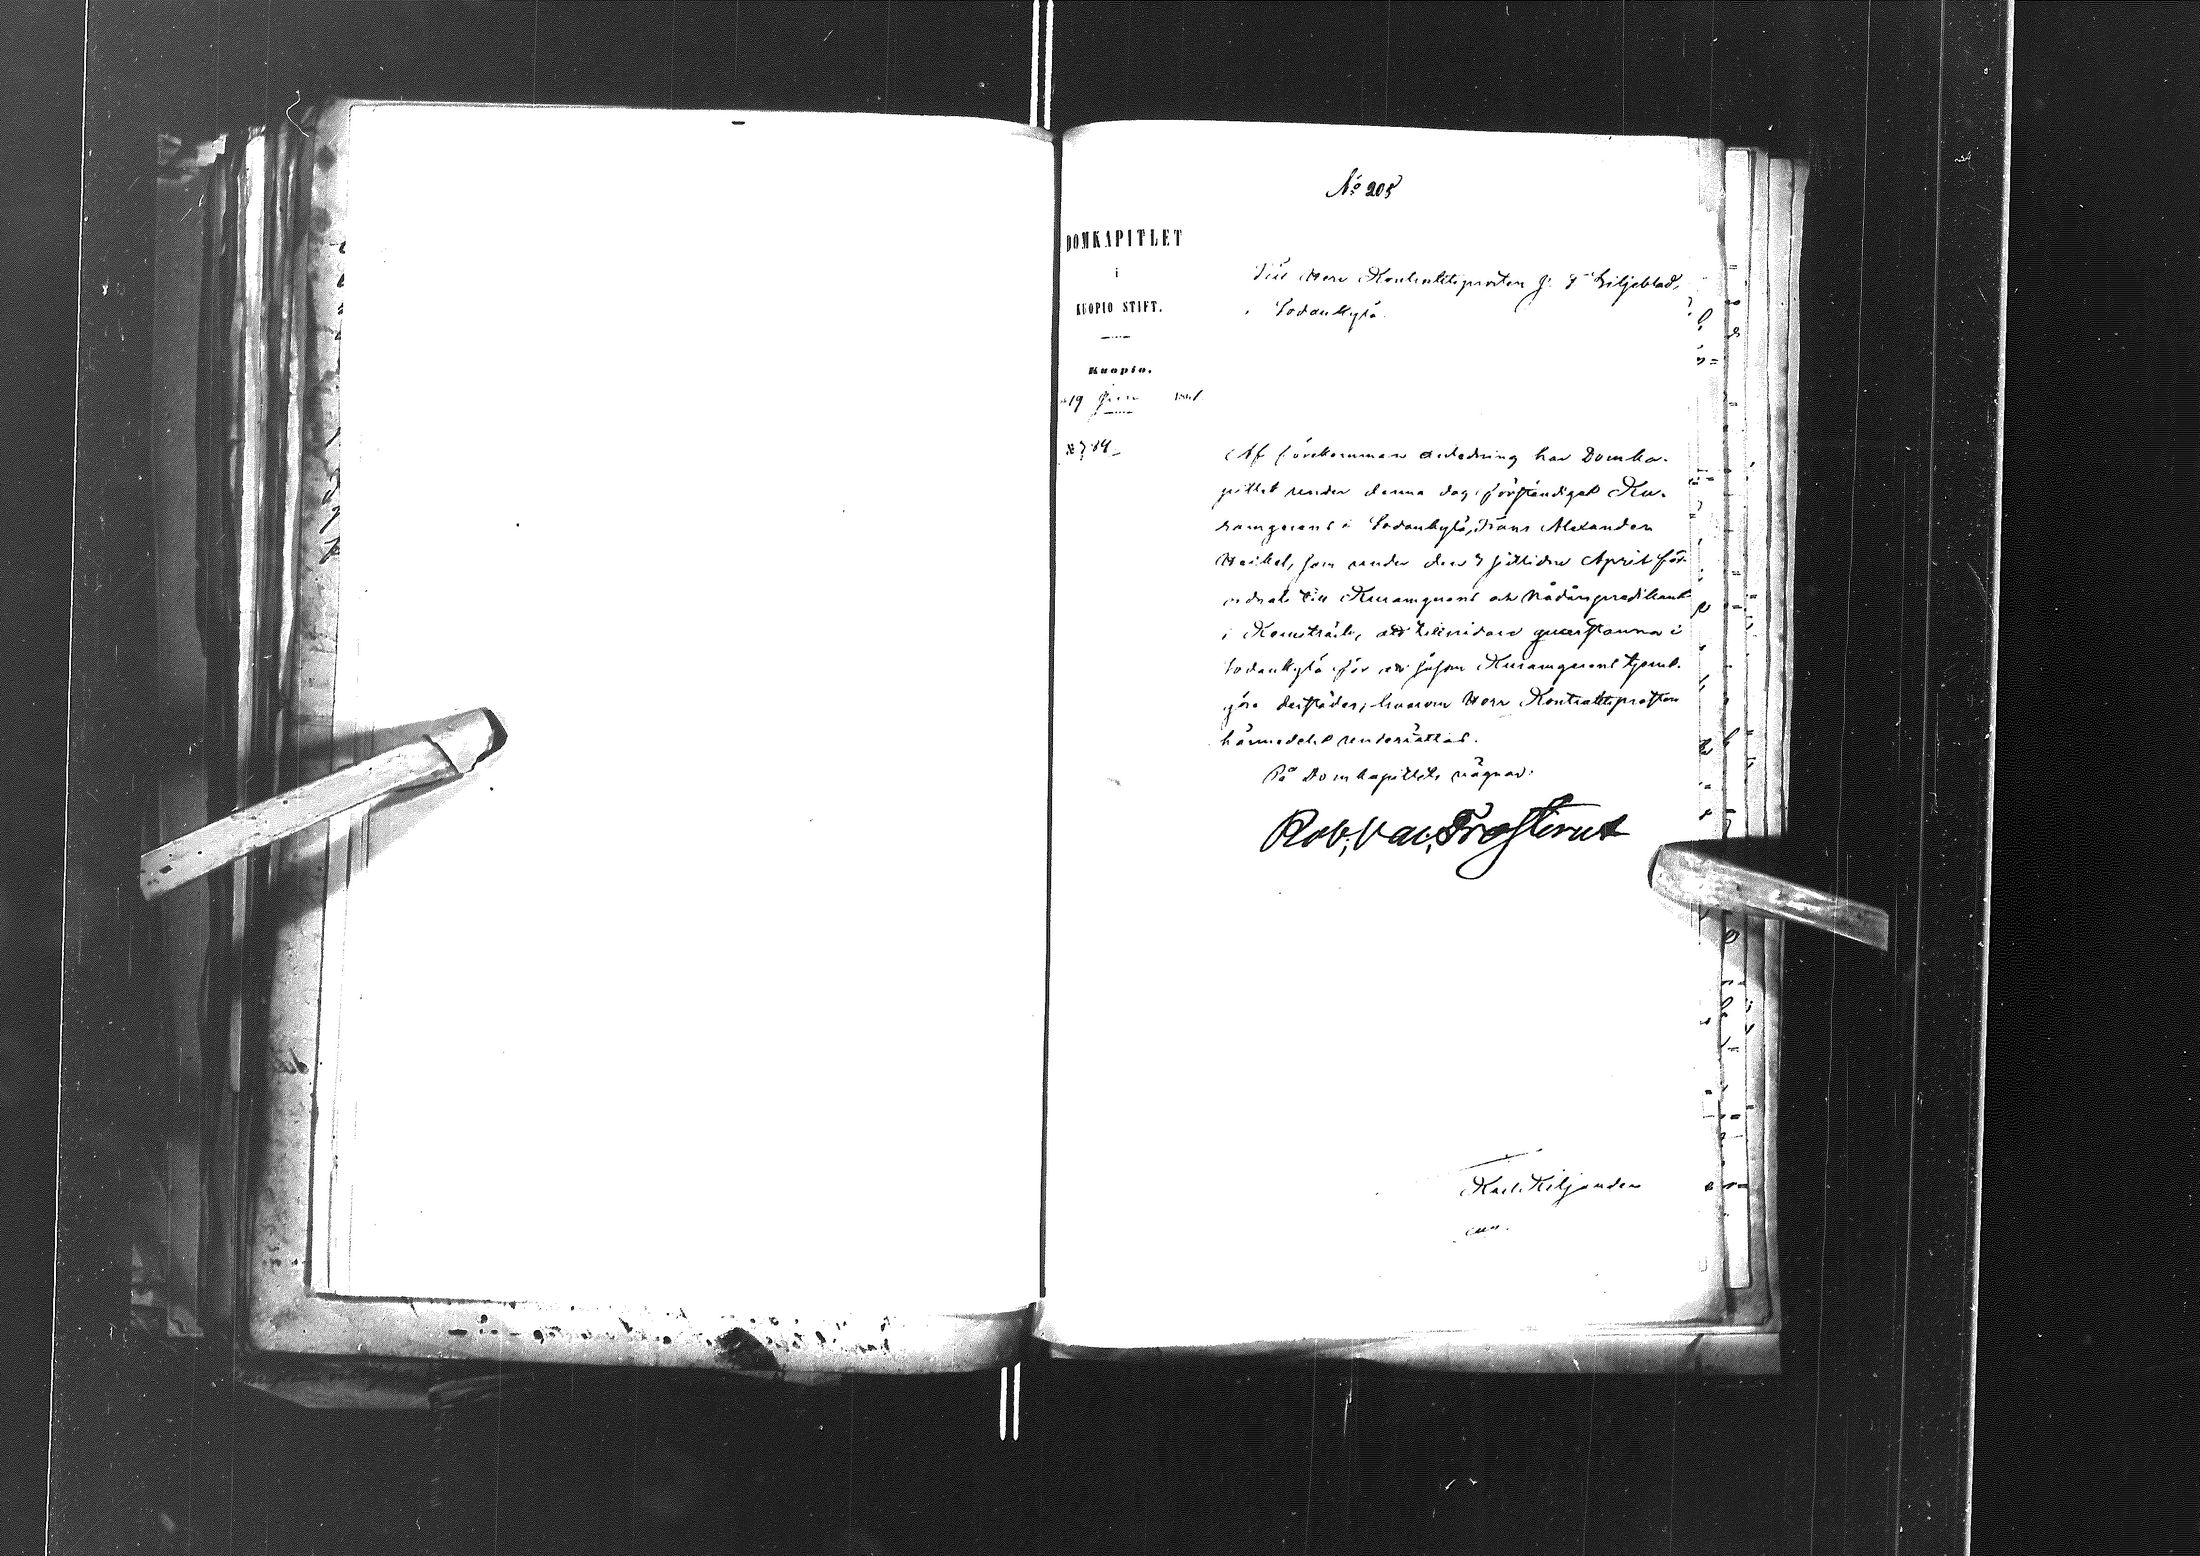 No 205
DOMKAPITLET
i
KUOPIO STIFT.
Kuopio.
19 Juni 1861.
No 784
Till Herr Kontraktsprosten J. F. Liljeblad,
i Sodankylä.
Af förekommen anledning har Domka-
pitlet under denna dag förständigat Ku-
ramgerent i Sodankylä, Frans Alexander
Heikel, som under den 3 sistliden April för-
ordnats till Kuramgerent och Nådårspredikant
i Kemiträsk, att tillsvidare qvarstanna i
Sodankylä för att såsom Kuramgerent tjenst-
göra derstädes, hvarom Herr Kontraktsprosten
härmedelst underrättas.
På Domkapitlets vägnar:
Rob. Val. Frosterus
Karl Kiljander